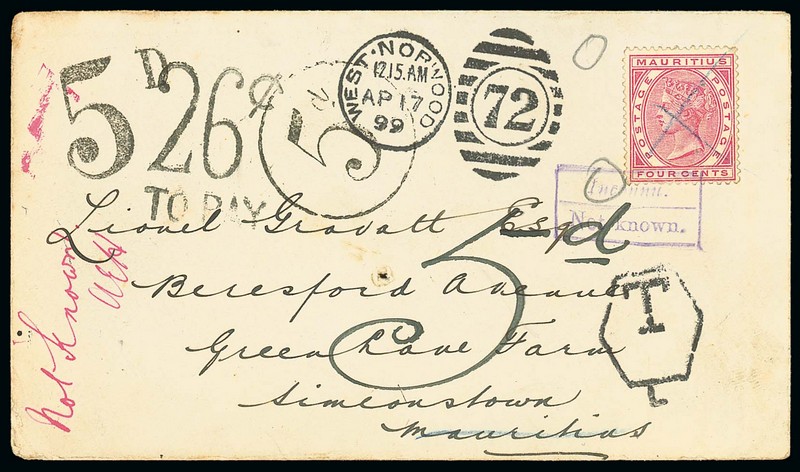 5D 26¢
TO PAY
5D
WEST·NORWOOD
12.15.AM
AP 17
99
72
MAURITIUS
POSTAGE
POSTAGE
FOUR CENTS
Not known.
Lionel Gravatt Esq
5d
Beresford Avenue
Green Lane Farm
Simeonstown
Mauritius
T
L
Not Known